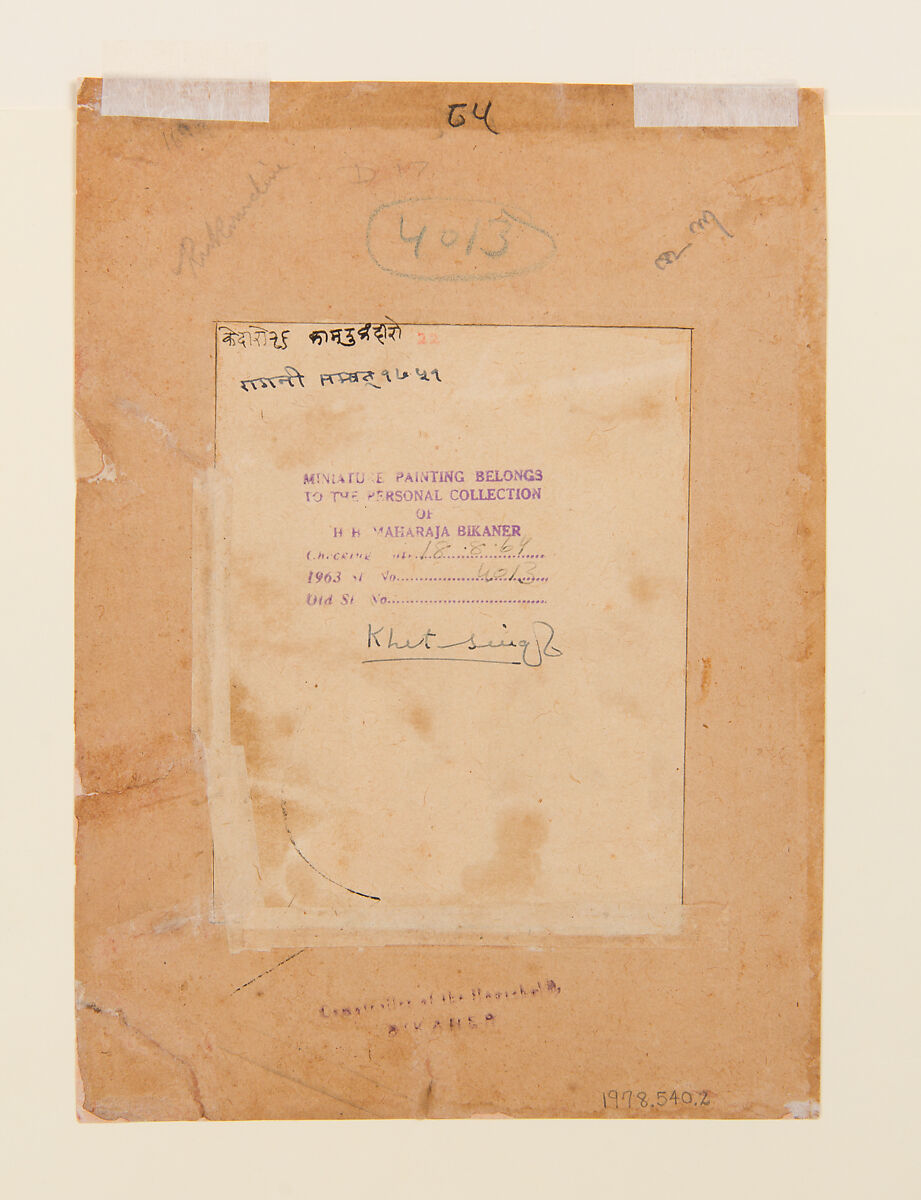 ८५
Rukundin
D 17
4013
केदारो २६ काम्दु केदारो 22
रागनी सम्बत् १७५१
MINIATURE PAINTING BELONGS
TO THE PERSONAL COLLECTION
OF
H H MAHARAJA BIKANER
Checking 18.8.64
1963 Sl No. 4013
Old Sl No.
Khet singh
Comptroller of the Household,
BIKANER
1978.540.2